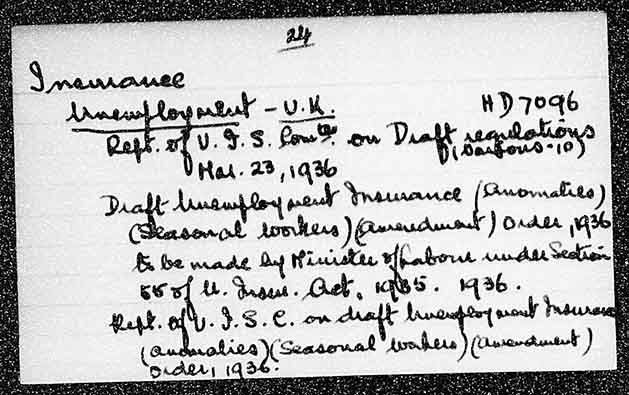 24
Insurance
Unemployment - U.K. HD7096
Rept. of U.I.S. Comtee. on Draft regulations
Mar. 23, 1936
Draft Unemployment Insurance (Anomalies)
(Seasonal Workers) (Amendment) Order, 1936
to be made by Minister of Labour under Section
55 of U. Insur. Act, 1935. 1936.
Rept. of U.I.S.C. on draft Unemployment Insurance
(Anomalies) (Seasonal Workers) (Amendment)
Order, 1936.